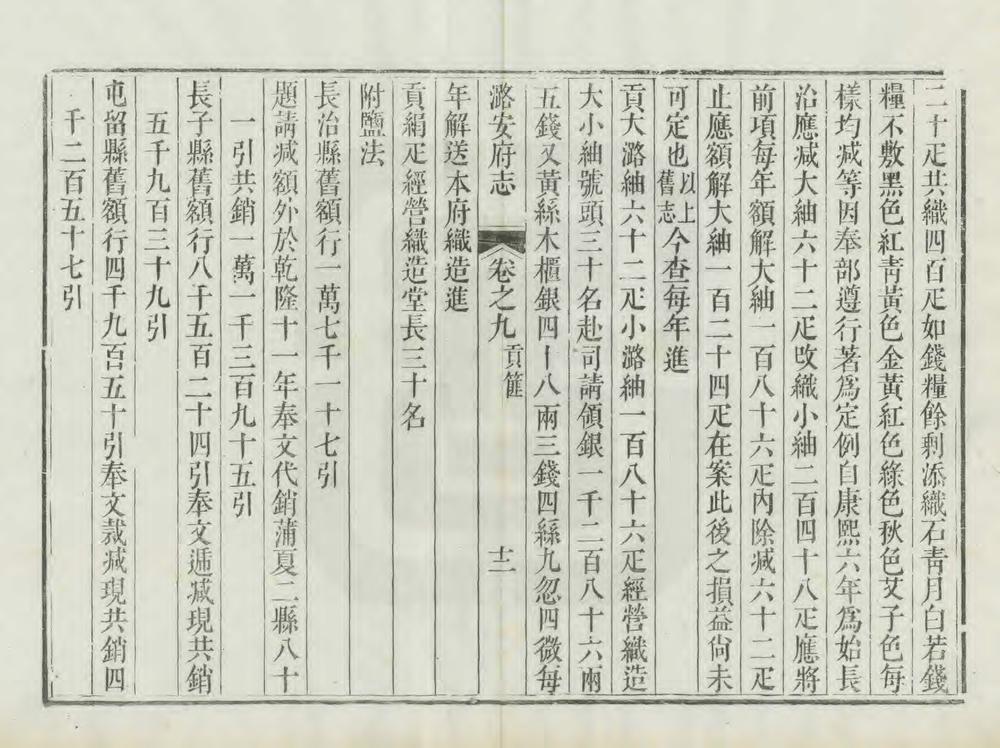 二十疋共織四百疋如錢糧餘剩添織石靑月白若錢
糧不敷黑色紅靑黃色金黃紅色綠色秋色艾子色每
樣均减等因奉部遵行著爲定例自康熙六年爲始長
治應减大紬六十二疋改織小紬二百四十八疋應將
前項每年額解大紬一百八十六疋內除减六十二疋
止應額解大紬一百二十四疋在案此後之損益尙未
可定也以上舊志今查每年進
貢大潞紬六十二疋小潞紬一百八十六疋經營織造
大小紬號頭三十名赴司請領銀一千二百八十六兩
五錢又黃絲木櫃銀四十八兩三錢四絲九忽四微每
潞安府志 卷之九 貢篚 十二
年解送本府織造進
貢絹疋經營織造堂長三十名
附鹽法
長治縣舊額行一萬七千一十七引
題請减額外於乾隆十一年奉文代銷蒲夏二縣八十
一引共銷一萬一千三百九十五引
長子縣舊額行八千五百二十四引奉文遞减現共銷
五千九百三十九引
屯留縣舊額行四千九百五十引奉文裁减現共銷四
千二百五十七引